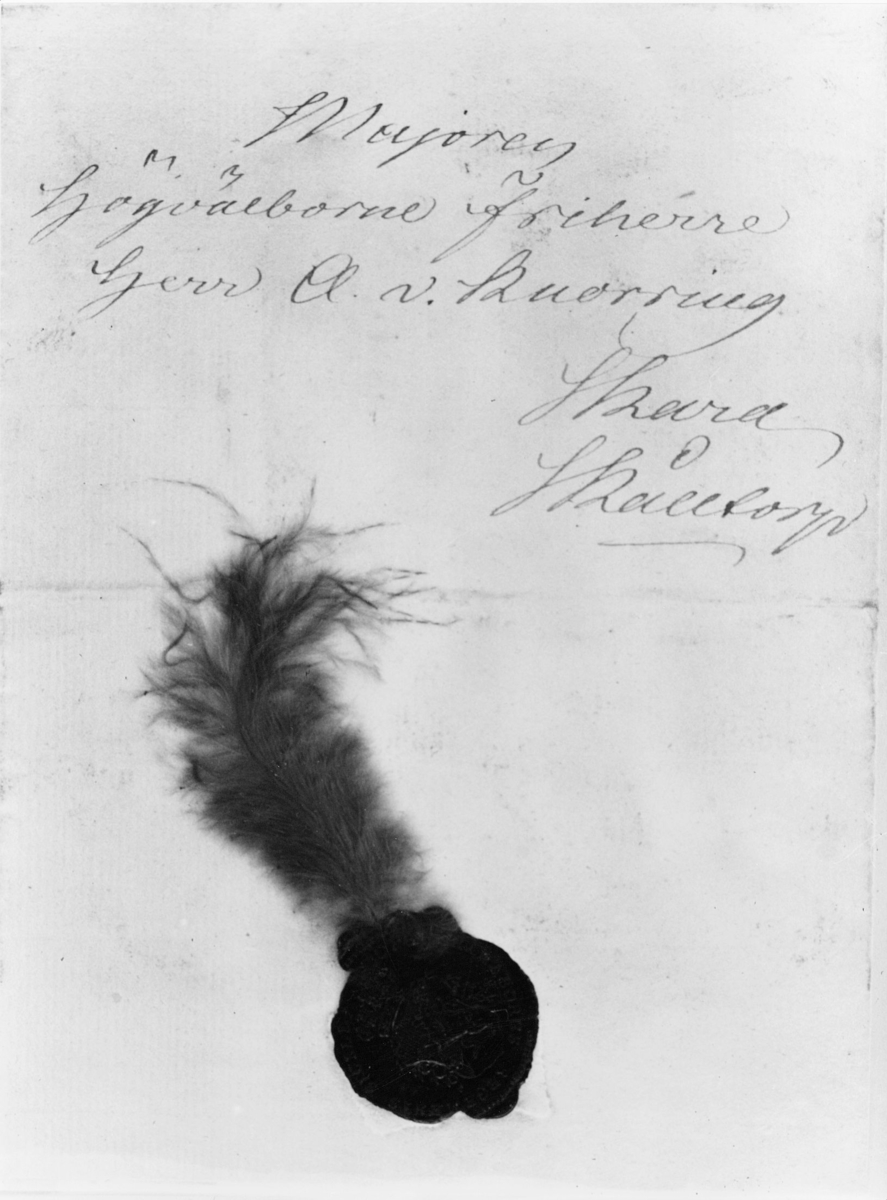 Majoren
Högvälborne Friherre
Herr A. v. Knorring
Skara
Skålltorp